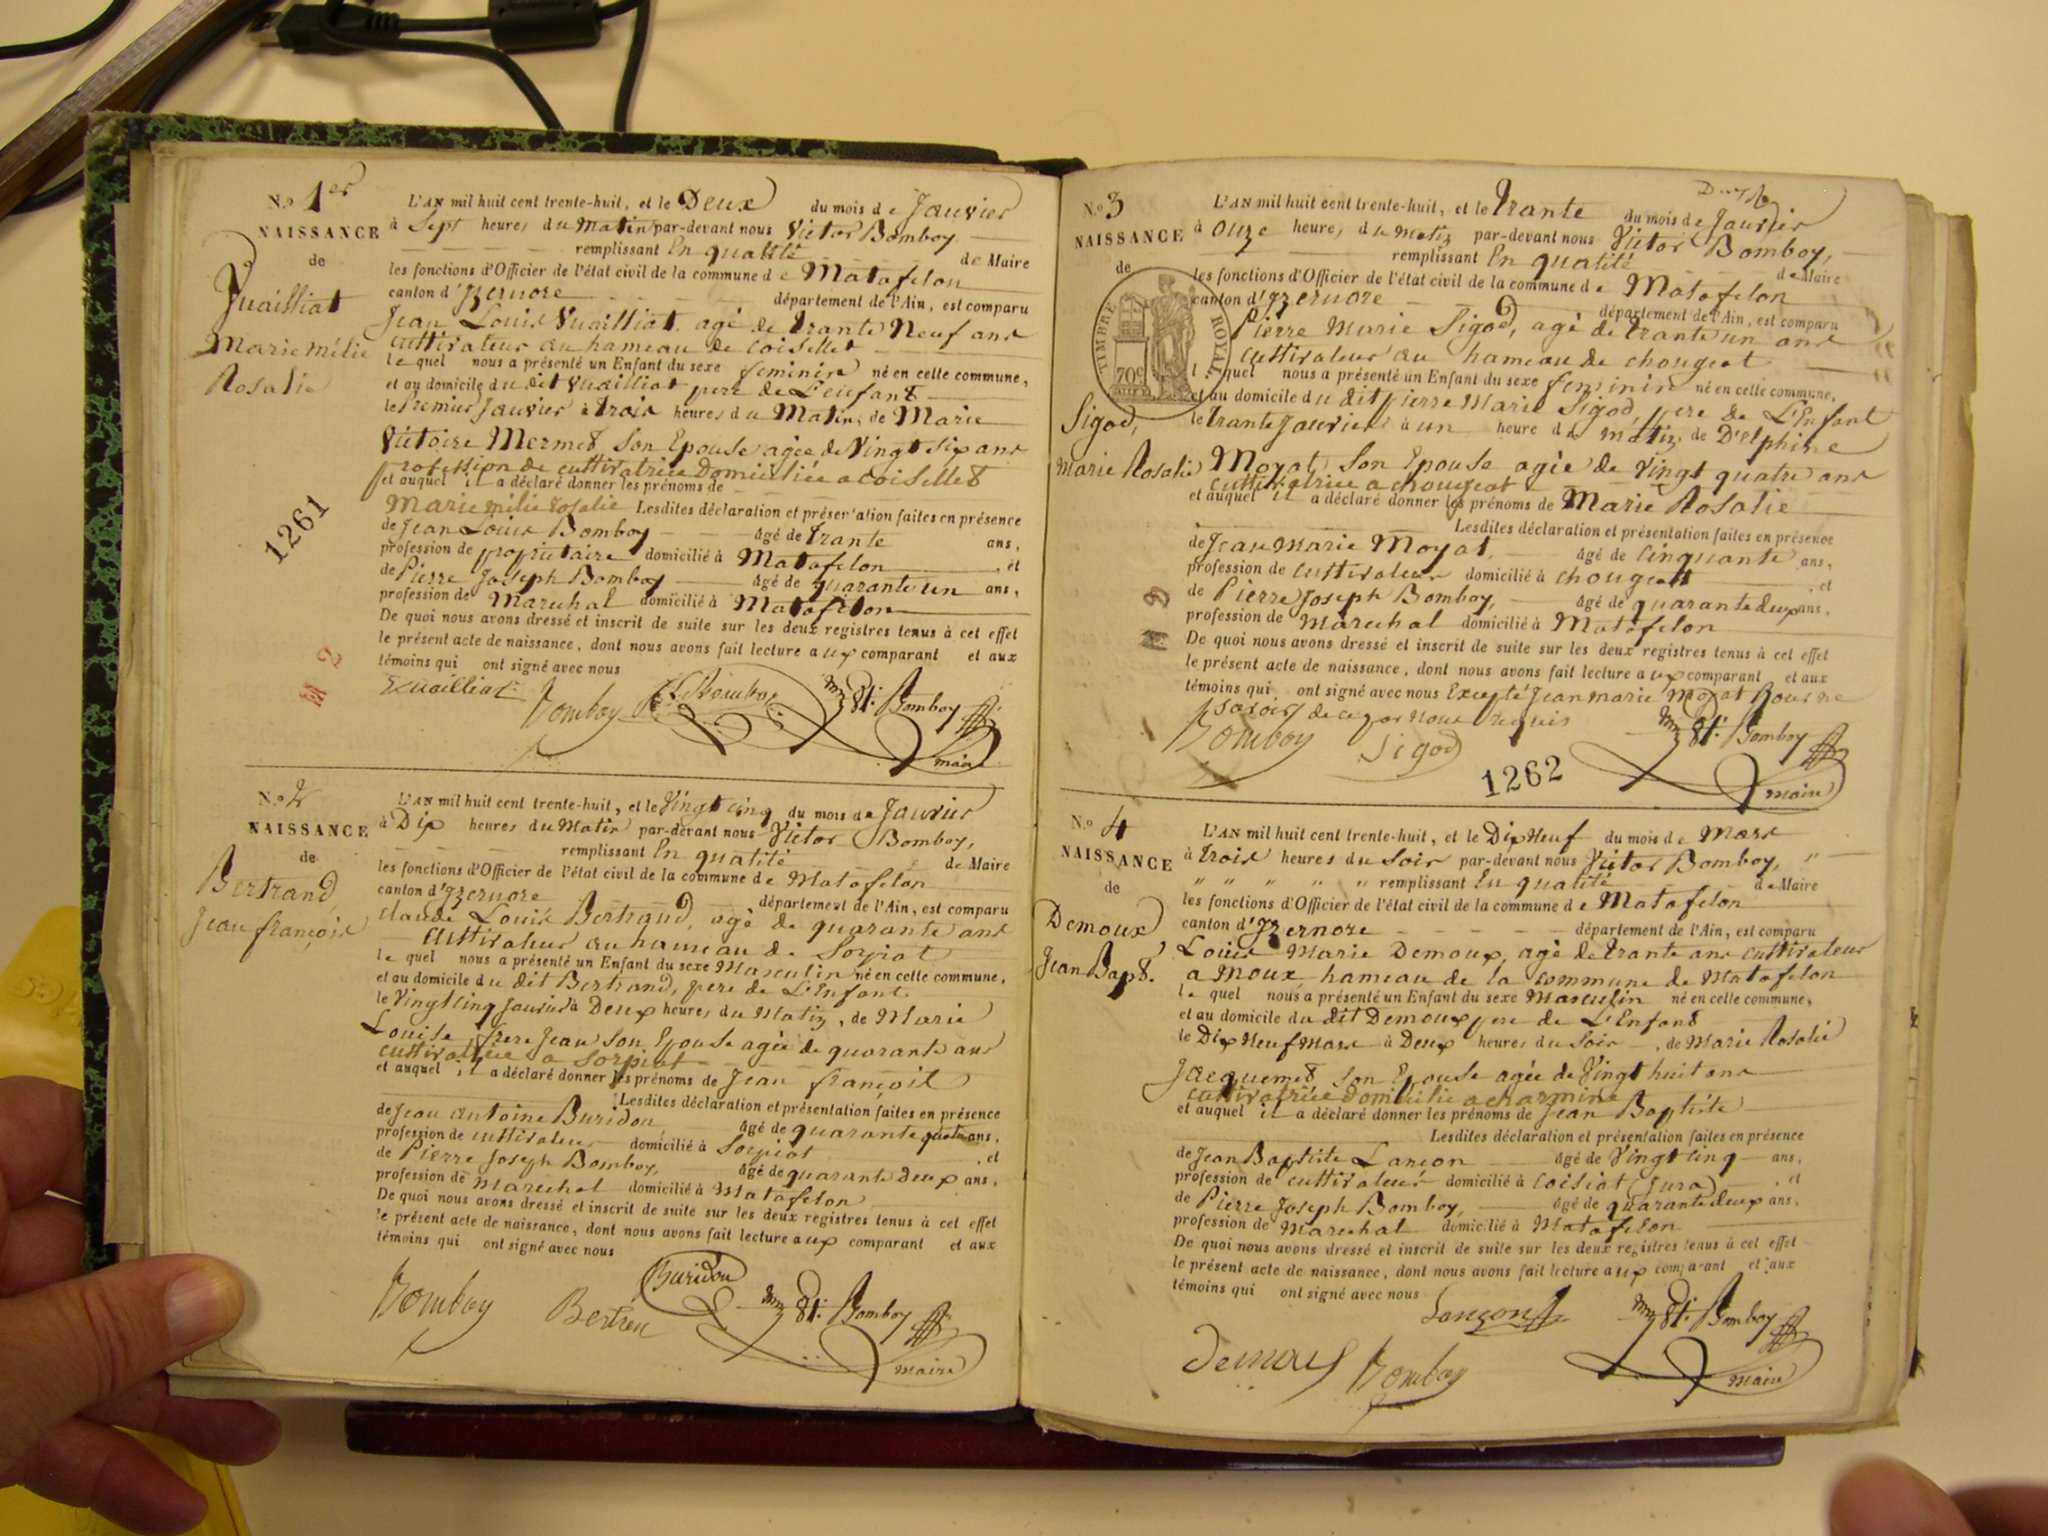 N.o 1er
NAISSANCE
de
Vuailliat
Marie mélie
Rosalie
1261
M 2
L'AN mil huit cent trente-huit, et le Deux du mois de Janvier
à Sept heures du matin par-devant nous Victor Bomboy,
remplissant En qualité de Maire
les fonctions d'Officier de l'état civil de la commune de Matafelon
canton d'Izernore département de l'Ain, est comparu
Jean Louis Vuailliat, agé de trante Neuf ans
cultivateur au hameau de coisellet
lequel nous a présenté un Enfant du sexe feminin né en cette commune,
et au domicile du dit Vuailliat pere de L'enfant
le Premier Janvier à trois heures du Matin, de Marie
Victoire Mermet Son Epouse agée de Vingt Six ans
profession de cultivatrice Domiciliée a coisellet
et auquel il a déclaré donner les prénoms de
Marie mélie rosalie Lesdites déclaration et présentation faites en présence
de Jean Louis Bomboy agé de trante ans,
profession de propriétaire domicilié à Matafelon, et
de Pierre Joseph Bomboy agé de quarante un ans,
profession de Marechal domicilié à Matafelon
De quoi nous avons dressé et inscrit de suite sur les deux registres tenus à cet effet
le présent acte de naissance, dont nous avons fait lecture aux comparant et aux
témoins qui ont signé avec nous
Vuailliat Bomboy Bomboy Bomboy
maire
N.o 2
NAISSANCE
de
Bertrand,
Jean françois
L'AN mil huit cent trente-huit, et le Vingt cinq du mois de Janvier
à Dix heures du Matin par-devant nous Victor Bomboy,
remplissant En qualité de Maire
les fonctions d'Officier de l'état civil de la commune de Matafelon
canton d'Izernore département de l'Ain, est comparu
claude Louis Bertrand, agé de quarante ans
cultivateur au hameau de Sorpiat
lequel nous a présenté un Enfant du sexe Masculin né en cette commune,
et au domicile du dit Bertrand, pere de L'Enfant
le Vingt Cinq Janvier à Deux heures du Matin, de Marie
Louise, frere Jean Son Epouse agée de quarante ans
cultivatrice a Sorpiat
et auquel il a déclaré donner les prénoms de Jean françois
Lesdites déclaration et présentation faites en présence
de Jean Antoine Buridon, agé de quarante quatre ans,
profession de cultivateur domicilié à Sorpiat, et
de Pierre Joseph Bomboy, agé de quarante deux ans,
profession de Marechal domicilié à Matafelon
De quoi nous avons dressé et inscrit de suite sur les deux registres tenus à cet effet
le présent acte de naissance, dont nous avons fait lecture aux comparant et aux
témoins qui ont signé avec nous
Buridon
Bomboy Bertren Bomboy
maire
N.o 3
NAISSANCE
de
TIMBRE ROYAL
70c
Sigod,
Marie Rosalie
L'AN mil huit cent trente-huit, et le trante du mois de Janvier
à Onze heures du matin par-devant nous Victor Bomboy,
remplissant En qualité de Maire
les fonctions d'Officier de l'état civil de la commune de Matafelon
canton d'Izernore département de l'Ain, est comparu
Pierre Marie Sigod, agé de trante un ans
cultivateur au hameau de chougeat
lequel nous a présenté un Enfant du sexe feminin né en cette commune,
et au domicile du dit pierre Marie Sigod, pere de L'Enfant
le trante Janvier à un heure du matin, de Delphine
Moyat, Son Epouse agée de Vingt quatre ans
cultivatrice a chougeat
et auquel il a déclaré donner les prénoms de Marie Rosalie
Lesdites déclaration et présentation faites en présence
de Jean Marie Moyat, agé de cinquante ans,
profession de cultivateur domicilié à chougeat, et
de Pierre Joseph Bomboy, agé de quarante deux ans,
profession de Marechal domicilié à Matafelon
De quoi nous avons dressé et inscrit de suite sur les deux registres tenus à cet effet
le présent acte de naissance, dont nous avons fait lecture aux comparant et aux
témoins qui ont signé avec nous Excepté Jean marie Moyat Pour ne
savoir de ce par nous requis
Bomboy Sigod Bomboy
1262
maire
N.o 4
NAISSANCE
de
Demoux,
Jean Bapt.
L'AN mil huit cent trente-huit, et le Dix Neuf du mois de Mars
à trois heures du Soir par-devant nous Victor Bomboy,
remplissant En qualité de Maire
les fonctions d'Officier de l'état civil de la commune de Matafelon
canton d'Izernore département de l'Ain, est comparu
Louis Marie Demoux, agé de trante ans cultivateur
a Moux, hameau de la commune de Matafelon
lequel nous a présenté un Enfant du sexe Masculin né en cette commune,
et au domicile du dit Demoux pere de L'Enfant
le Dix Neuf Mars à Deux heures du Soir, de Marie Rosalie
Jacquemet Son Epouse agée de Vingt huit ans
cultivatrice domiciliée a charmine
et auquel il a déclaré donner les prénoms de Jean Baptiste
Lesdites déclaration et présentation faites en présence
de Jean Baptiste Lançon agé de Vingt cinq ans,
profession de cultivateur domicilié à Coisiat (Jura), et
de Pierre Joseph Bomboy, agé de quarante deux ans,
profession de Marechal domicilié à Matafelon
De quoi nous avons dressé et inscrit de suite sur les deux registres tenus à cet effet
le présent acte de naissance, dont nous avons fait lecture aux comparant et aux
témoins qui ont signé avec nous
Lançon Bomboy
Demoux Bomboy maire